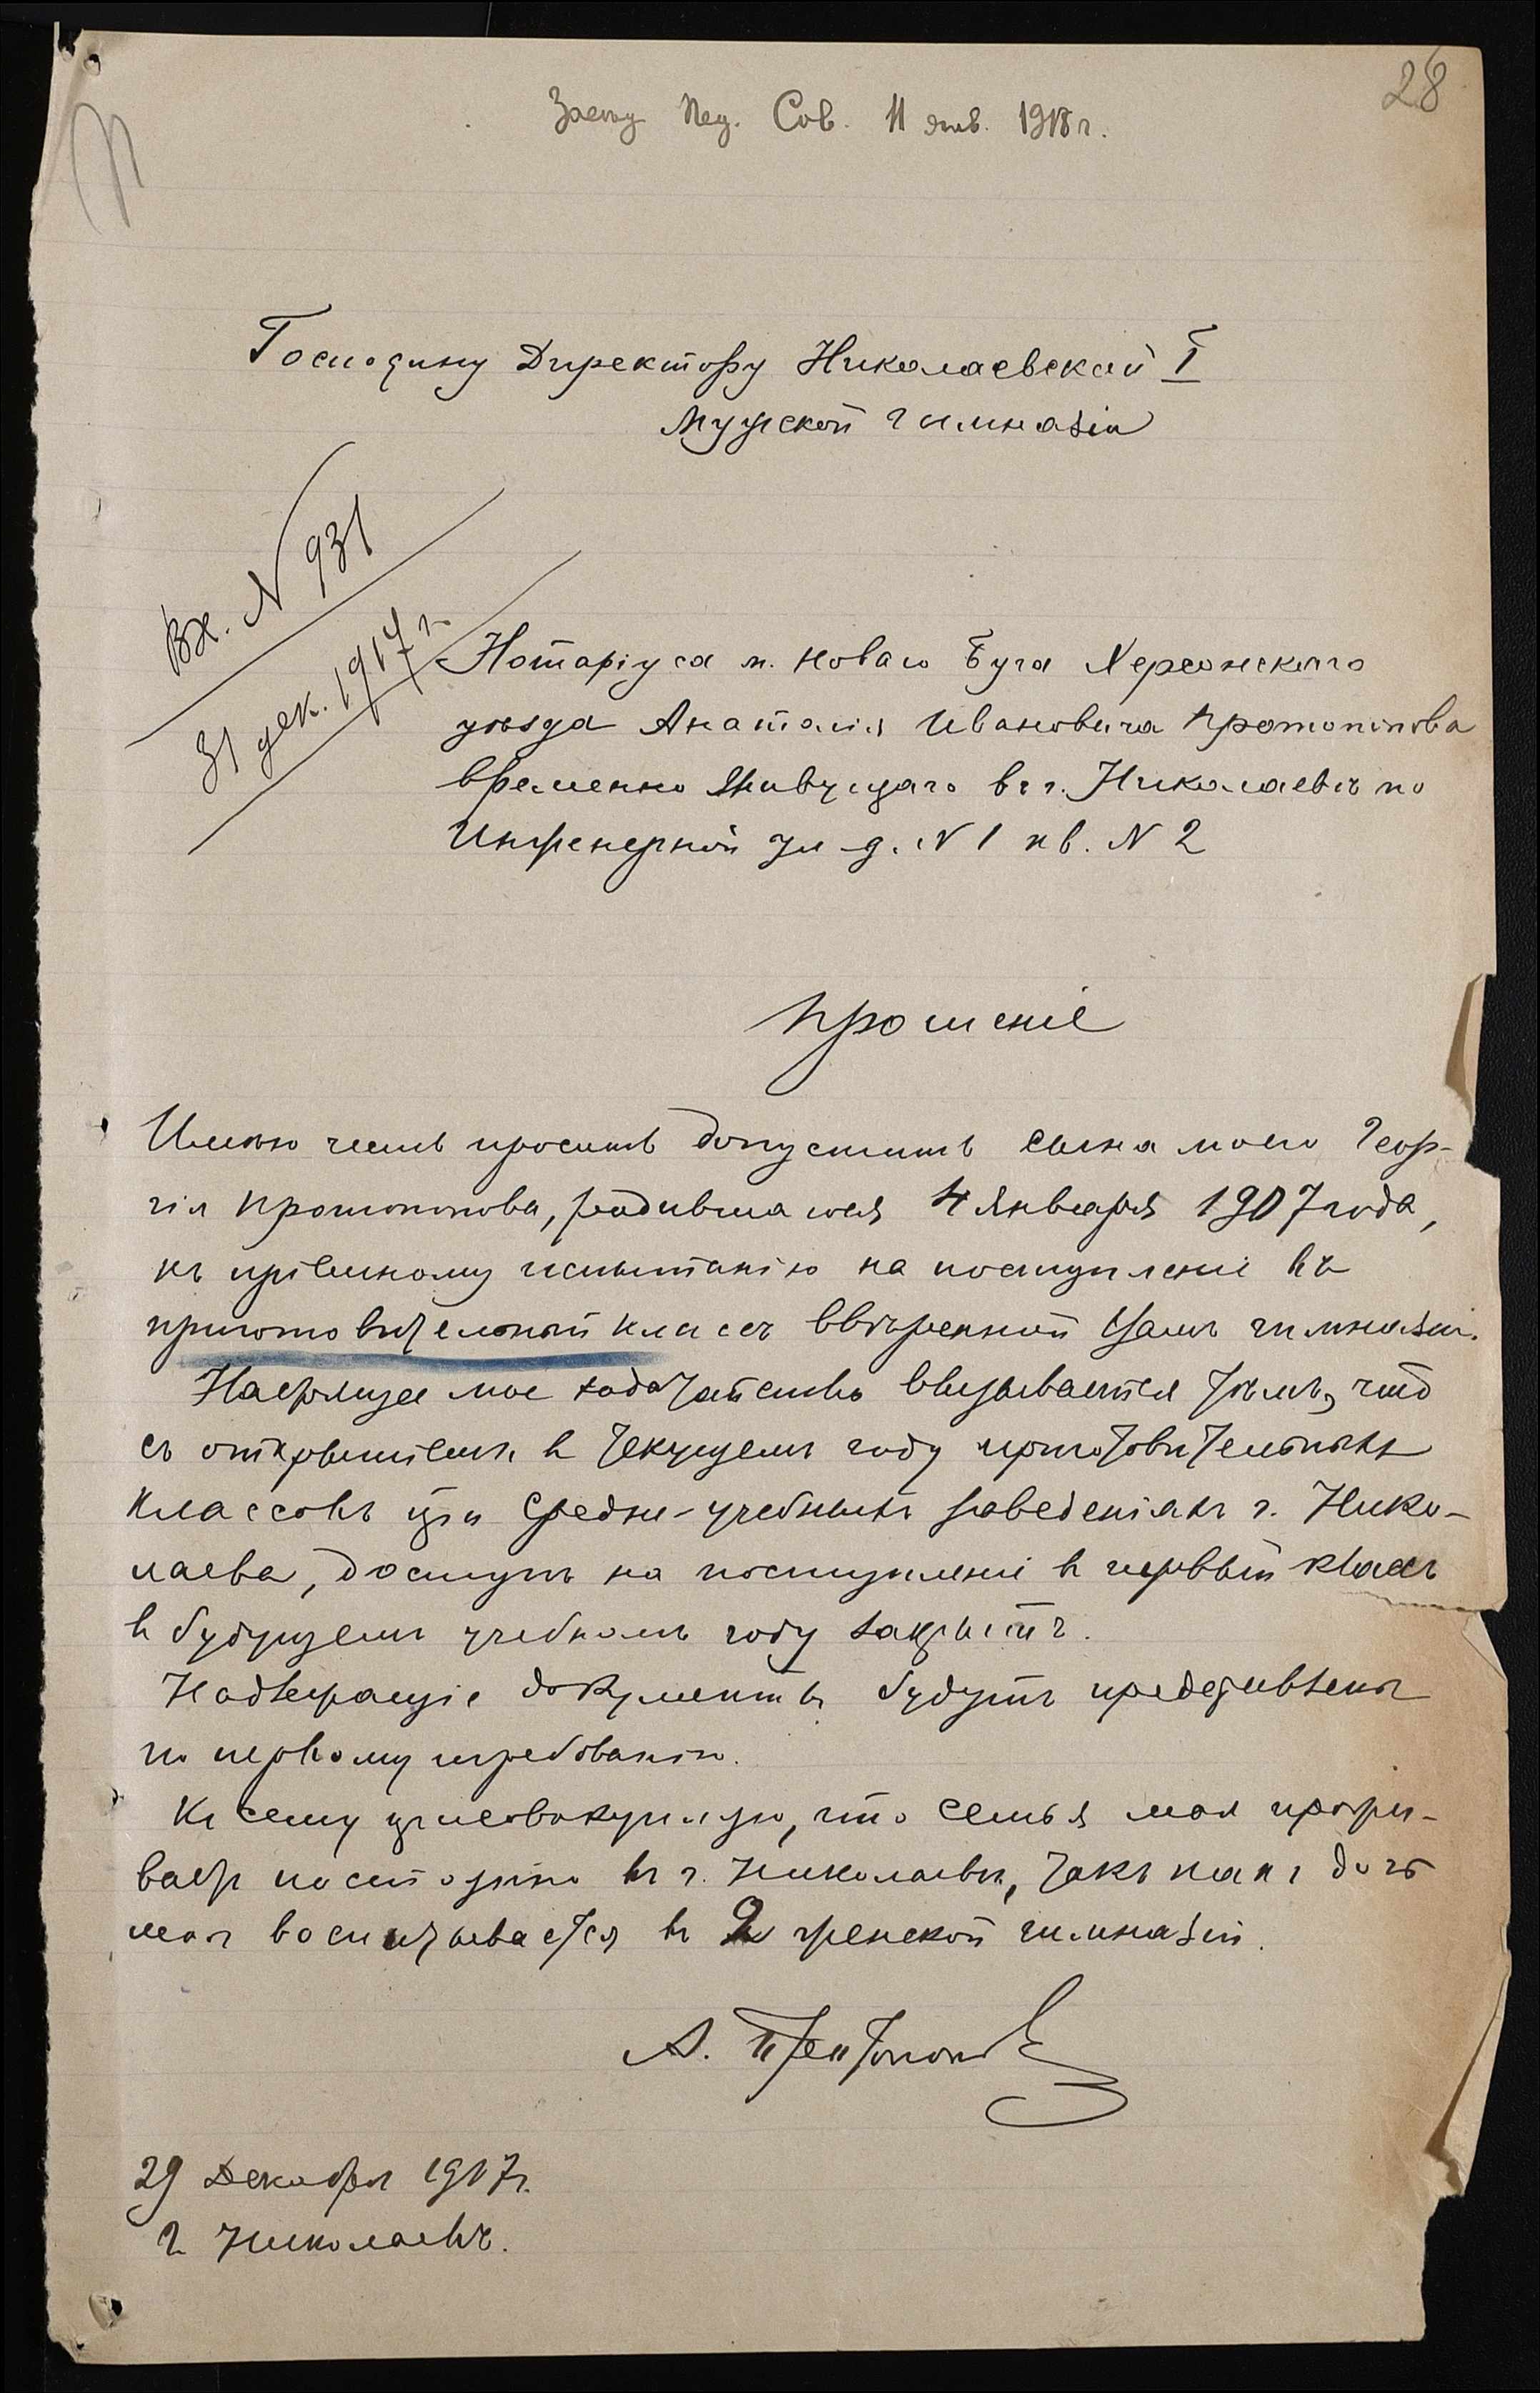 28
Засѣд. Пед. Сов. 11 янв. 1918 г.
Господину Директору Николаевской I
мужской гимназіи
Вх. N 931
31 дек. 1917 г.
Нотаріуса м. Новаго Буга Херсонскаго
уѣзда Анатолія Ивановича Протопопова
временно живущаго въ г. Николаевѣ по
Инженерной ул д. N 1 кв. N 2
Прошеніе
Имѣю честь просить допустить сына моего Геор-
гія Протопопова, родившагося 4 января 1907 года,
къ пріемному испытанію на поступленіе въ
приготовительный классъ ввѣренной Вамъ гимназіи.
Настоящее мое ходатайство вызывается тѣмъ, что
съ открытіемъ въ текущемъ году приготовительныхъ
классовъ при средне-учебныхъ заведеніяхъ г. Нико-
лаева, доступъ на поступленіе въ первый классъ
въ будущемъ учебномъ году закрытъ.
Надлежащіе документы будутъ представлены
по первому требованію.
Къ сему присовокупляю, что семья моя прожи-
ваетъ постоянно въ г. Николаевѣ, такъ какъ дочь
моя воспитывается въ 2 женской гимназіи.
А. Протопоповъ
29 Декабря 1917 г.
г. Николаевъ.